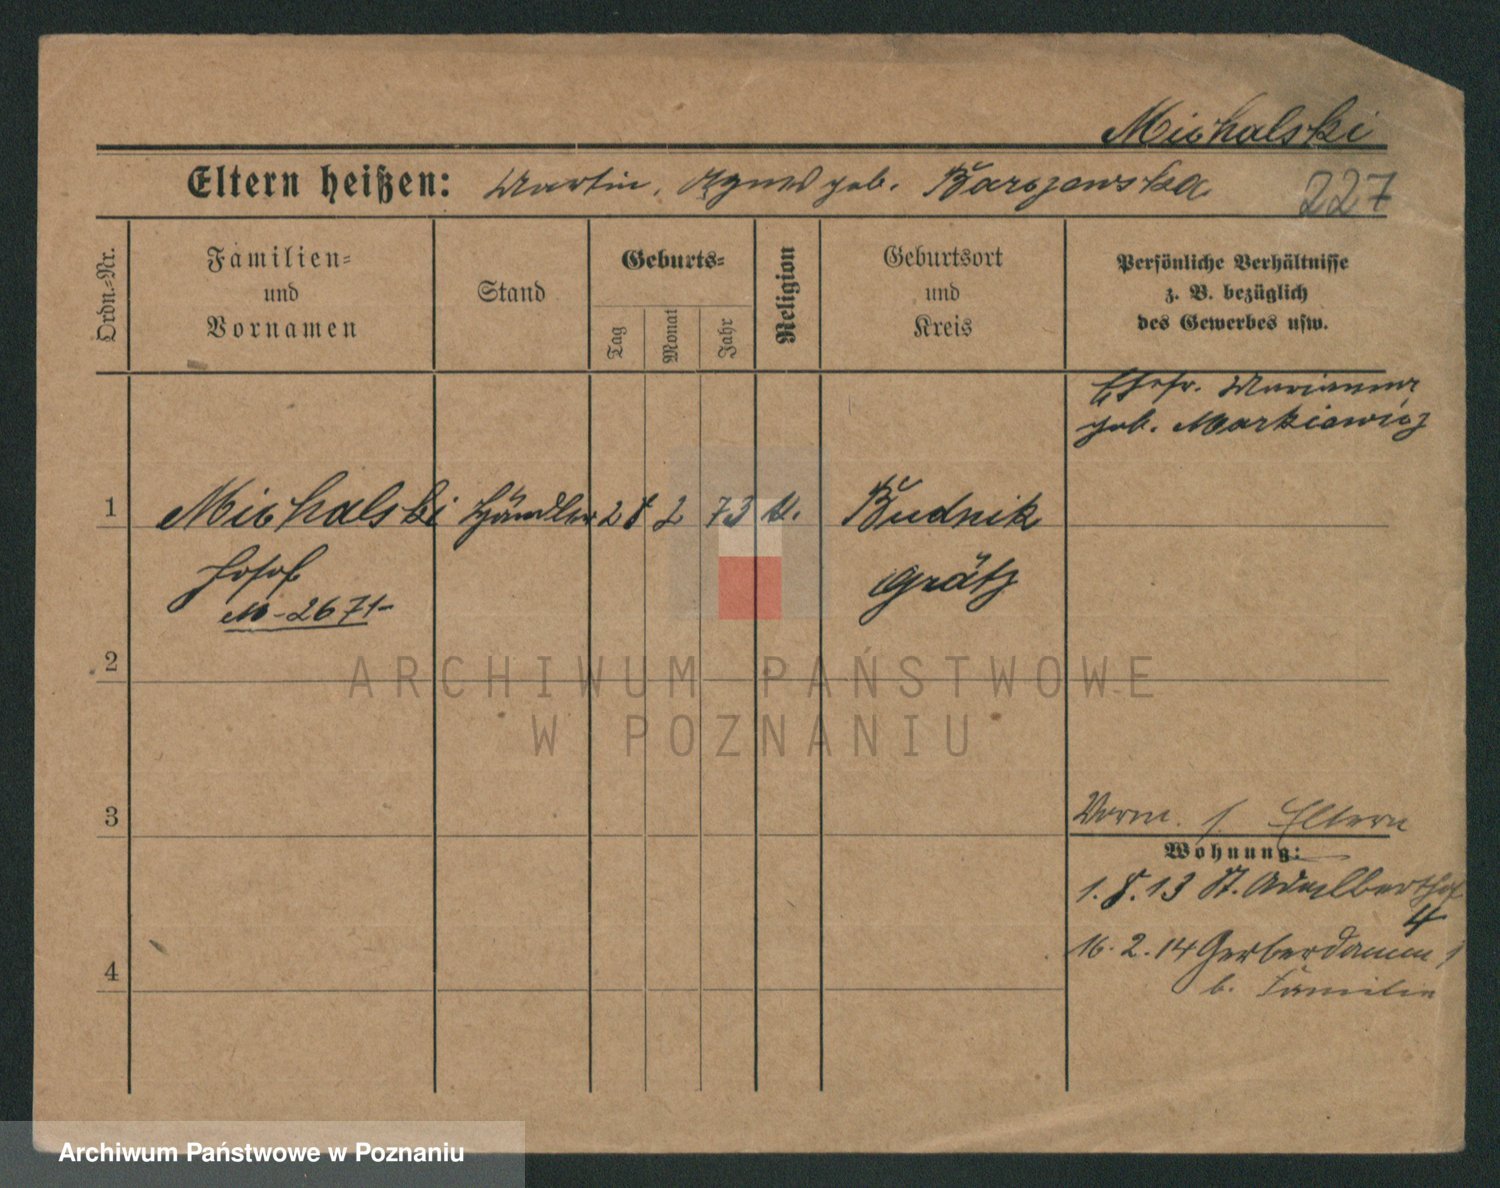 Michalski
Eltern heißen: Martin, Agnes geb. Barczewska
227
Ordn.-Nr.
Familien-
und
Vornamen
Stand
Geburts-
Tag
Monat
Jahr
Religion
Geburtsort
und
Kreis
Persönliche Verhältnisse
z. B. bezüglich
des Gewerbes usw.
Ehefr. Marianna
geb. Markiewicz
1 Michalski Händler 28 2 73 k. Budnik
Josef Grätz
M-2671-
2
ARCHIWUM PAŃSTWOWE
W POZNANIU
3
Vorm. s. Eltern
Wohnung:
1.8.13 St. Adalbertstr
4
16.2.14 Gerberdamm 1
4
b. Familie
Archiwum Państwowe w Poznaniu